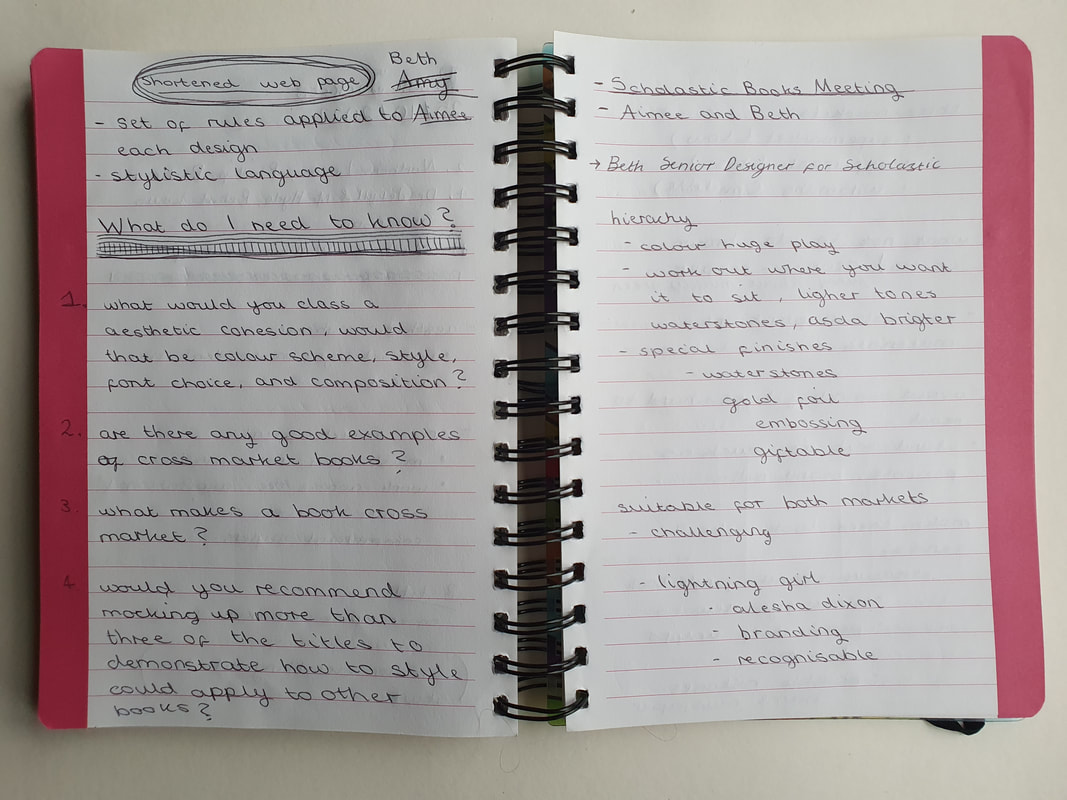 Shortened web page Beth
Amy
- set of rules applied to Aimee
each design
- stylistic language
What do I need to know?
1. what would you class a
aesthetic cohesion, would
that be colour scheme, style,
font choice, and composition?
2. are there any good examples
of cross market books?
3. what makes a book cross
market?
4. would you recommend
mocking up more than
three of the titles to
demonstrate how to style
could apply to other
books?
- Scholastic Books Meeting
- Aimee and Beth
→ Beth Senior Designer for Scholastic
hierachy
- colour huge play
- work out where you want
it to sit, ligher tones
waterstones, asda brigter
- special finishes
- waterstones
gold foil
embossing
giftable
suitable for both markets
- challenging
- lightning girl
- alesha dixon
- branding
- recognisable